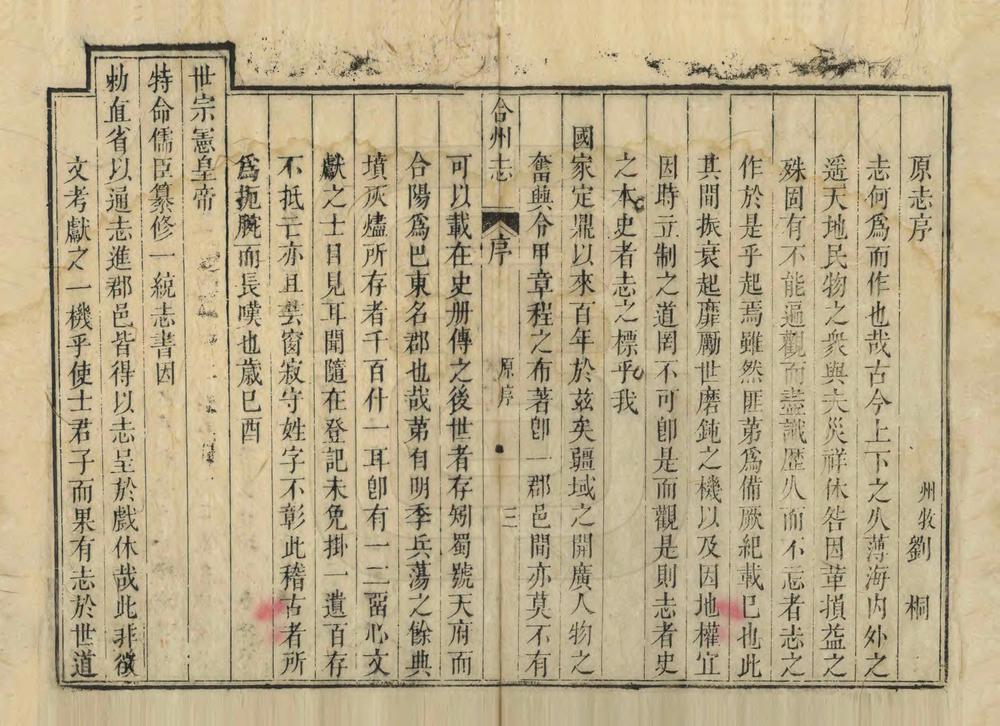 原志序
州牧劉桐
志何爲而作也哉古今上下之久薄海内外之
遥天地民物之衆與夫災祥休咎因革損益之
殊固有不能遍觀而盡識歷久而不忘者志之
作於是乎起焉雖然匪第爲備厥紀載已也此
其間振衰起靡勵世磨鈍之機以及因地權宜
因時立制之道罔不可卽是而觀是則志者史
之本史者志之標乎我
國家定鼎以來百年於兹矣疆域之開廣人物之
奮興令甲章程之布著卽一郡邑間亦莫不有
合州志
序
原序
三
可以載在史册傳之後世者存矧蜀號天府而
合陽爲巴東名郡也哉第自明季兵蕩之餘典
墳灰燼所存者千百什一耳卽有一二畱心文
獻之士目見耳聞隨在登記未免掛一遺百存
不抵亡亦且芸窗寂守姓字不彰此稽古者所
爲扼腕而長嘆也歲巳酉
世宗憲皇帝
特命儒臣纂修一統志書因
勅直省以通志進郡邑皆得以志呈於戲休哉此非徵
文考獻之一機乎使士君子而果有志於世道